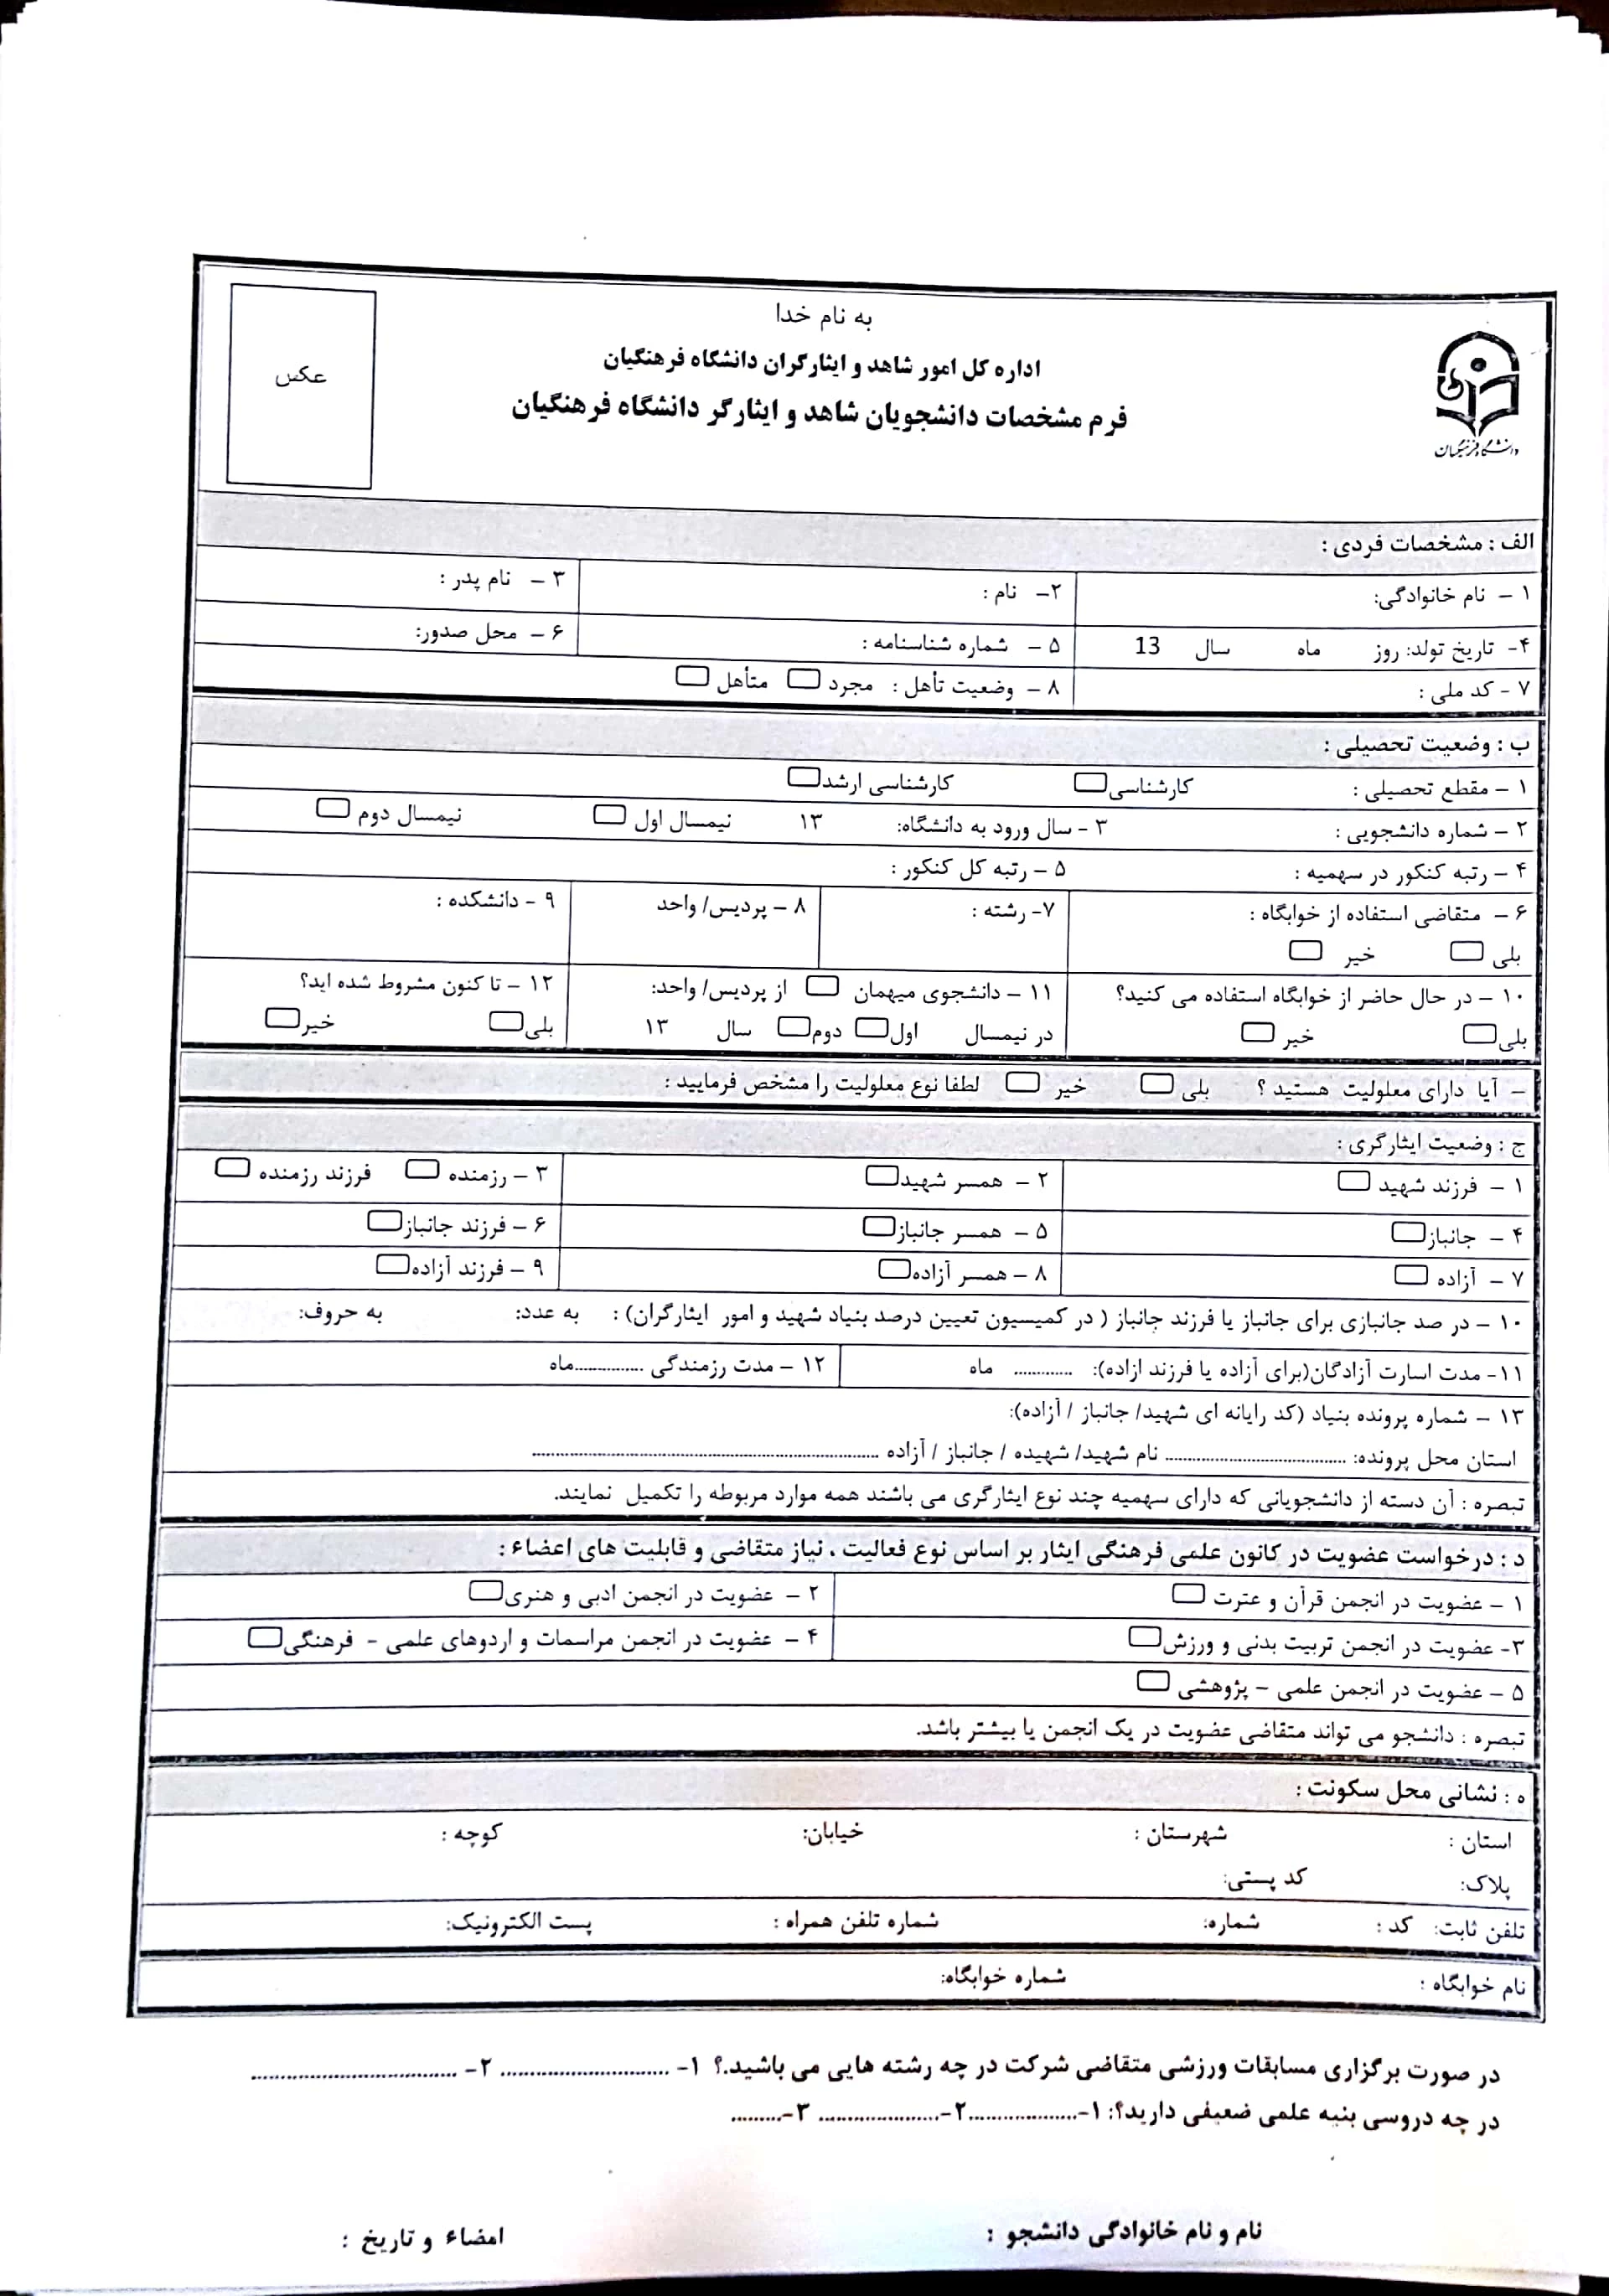 به نام خدا
اداره کل امور شاهد و ایثارگران دانشگاه فرهنگیان
فرم مشخصات دانشجویان شاهد و ایثارگر دانشگاه فرهنگیان
عکس
دانشگاه فرهنگیان
الف : مشخصات فردی :
۱ – نام خانوادگی: ۲– نام : ۳ – نام پدر :
۴- تاریخ تولد: روز ماه سال 13 ۵ – شماره شناسنامه : ۶ – محل صدور:
۷ - کد ملی : ۸ – وضعیت تأهل : مجرد متأهل
ب : وضعیت تحصیلی :
۱ – مقطع تحصیلی : کارشناسی کارشناسی ارشد
۲ – شماره دانشجویی : ۳ - سال ورود به دانشگاه: ۱۳ نیمسال اول نیمسال دوم
۴ – رتبه کنکور در سهمیه : ۵ – رتبه کل کنکور :
۶ – متقاضی استفاده از خوابگاه : ۷- رشته : ۸ – پردیس/ واحد ۹ - دانشکده :
بلی خیر
۱۰ – در حال حاضر از خوابگاه استفاده می کنید؟ ۱۱ – دانشجوی میهمان از پردیس/ واحد: ۱۲ – تا کنون مشروط شده اید؟
بلی خیر در نیمسال اول دوم سال ۱۳ بلی خیر
– آیا دارای معلولیت هستید ؟ بلی خیر لطفا نوع معلولیت را مشخص فرمایید :
ج : وضعیت ایثارگری :
۱ – فرزند شهید ۲ – همسر شهید ۳ – رزمنده فرزند رزمنده
۴ – جانباز ۵ – همسر جانباز ۶ – فرزند جانباز
۷ – آزاده ۸ – همسر آزاده ۹ – فرزند آزاده
۱۰ – در صد جانبازی برای جانباز یا فرزند جانباز ( در کمیسیون تعیین درصد بنیاد شهید و امور ایثارگران) : به عدد: به حروف:
۱۱- مدت اسارت آزادگان(برای آزاده یا فرزند ازاده): ............ ماه ۱۲ – مدت رزمندگی ..............ماه
۱۳ – شماره پرونده بنیاد (کد رایانه ای شهید/ جانباز / آزاده):
استان محل پرونده: ...................................... نام شهید/ شهیده / جانباز / آزاده ..........................................................................
تبصره : آن دسته از دانشجویانی که دارای سهمیه چند نوع ایثارگری می باشند همه موارد مربوطه را تکمیل نمایند.
د : درخواست عضویت در کانون علمی فرهنگی ایثار بر اساس نوع فعالیت ، نیاز متقاضی و قابلیت های اعضاء :
۱ – عضویت در انجمن قرآن و عترت ۲ – عضویت در انجمن ادبی و هنری
۳- عضویت در انجمن تربیت بدنی و ورزش ۴ – عضویت در انجمن مراسمات و اردوهای علمی – فرهنگی
۵ – عضویت در انجمن علمی – پژوهشی
تبصره : دانشجو می تواند متقاضی عضویت در یک انجمن یا بیشتر باشد.
ه : نشانی محل سکونت :
استان : شهرستان : خیابان: کوچه :
پلاک: کد پستی:
تلفن ثابت: کد : شماره: شماره تلفن همراه : پست الکترونیک:
نام خوابگاه : شماره خوابگاه:
در صورت برگزاری مسابقات ورزشی متقاضی شرکت در چه رشته هایی می باشید.؟ ۱- ............................. ۲- ...................................
در چه دروسی بنیه علمی ضعیفی دارید؟: ۱-..................۲-.................... ۳-.........
نام و نام خانوادگی دانشجو : امضاء و تاریخ :